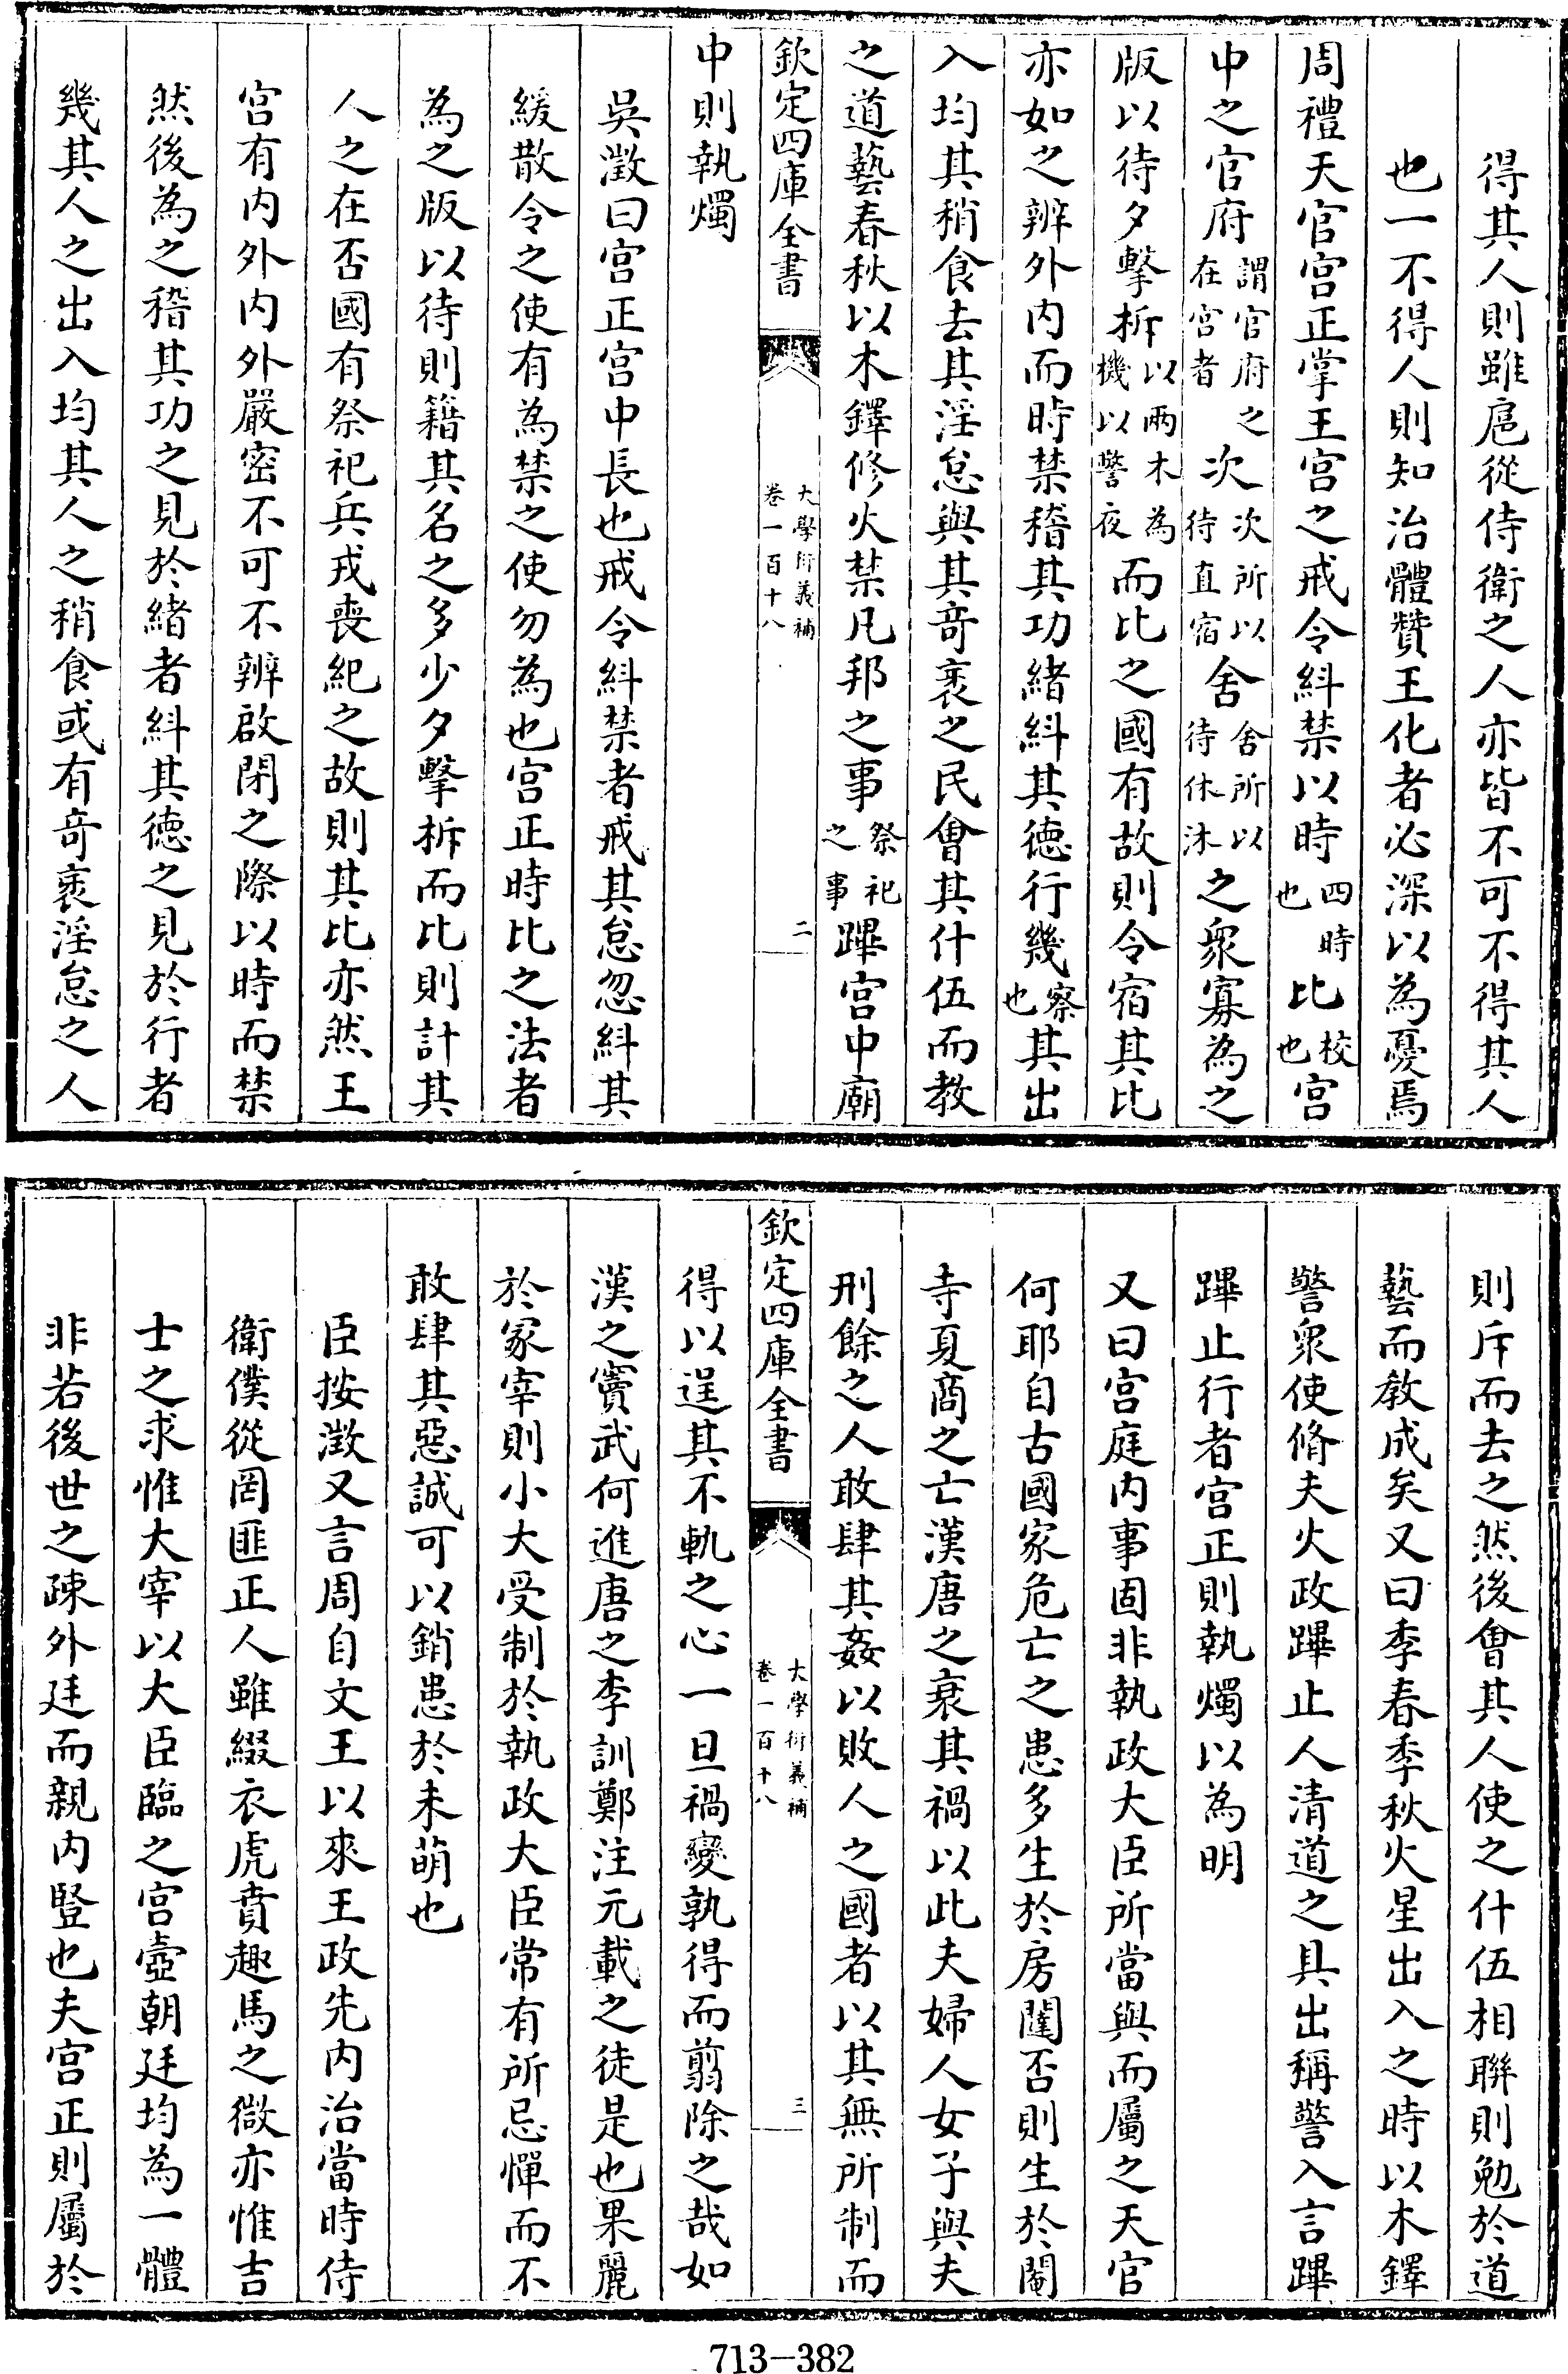 得其人則雖扈從侍衛之人亦皆不可不得其人
也一不得人則知治體贊王化者必深以為憂焉
周禮天官宫正掌王宫之戒令糾禁以時四時也比校也宫
中之官府謂官府之在宫者次次所以待直宿舍舍所以待休沐之衆寡為之
版以待夕擊柝以兩木為機以警夜而比之國有故則令宿其比
亦如之辨外内而時禁稽其功緒糾其德行幾察也其出
入均其稍食去其淫怠與其竒衺之民會其什伍而教
之道藝春秋以木鐸修火禁凡邦之事祭祀之事蹕宫中廟
欽定四庫全書 大學衍義補 卷一百十八 二
中則執燭
吳澂曰宫正宫中長也戒令糾禁者戒其怠忽糾其
緩散令之使有為禁之使勿為也宫正時比之法者
為之版以待則籍其名之多少夕擊柝而比則計其
人之在否國有祭祀兵戎喪紀之故則其比亦然王
宫有内外内外嚴密不可不辨啟閉之際以時而禁
然後為之稽其功之見於緒者糾其徳之見於行者
幾其人之出入均其人之稍食或有竒衺淫怠之人
則斥而去之然後會其人使之什伍相聨則勉於道
藝而教成矣又曰季春季秋火星出入之時以木鐸
警衆使脩夫火政蹕止人清道之具出稱警入言蹕
蹕止行者宫正則執燭以為明
又曰宫庭内事固非執政大臣所當與而屬之天官
何耶自古國家危亡之患多生於房闥否則生於閹
寺夏商之亡漢唐之衰其禍以此夫婦人女子與夫
刑餘之人敢肆其姦以敗人之國者以其無所制而
欽定四庫全書 大學衍義補 卷一百十八 三
得以逞其不軌之心一旦禍變孰得而翦除之哉如
漢之竇武何進唐之李訓鄭注元載之徒是也果麗
於冢宰則小大受制於執政大臣常有所忌憚而不
敢肆其惡誠可以銷患於未萌也
臣按澂又言周自文王以來王政先内治當時侍
衛僕從罔匪正人雖綴衣虎賁趣馬之微亦惟吉
士之求惟大宰以大臣臨之宫壼朝廷均為一體
非若後世之疎外廷而親内豎也夫宫正則屬於
713-382